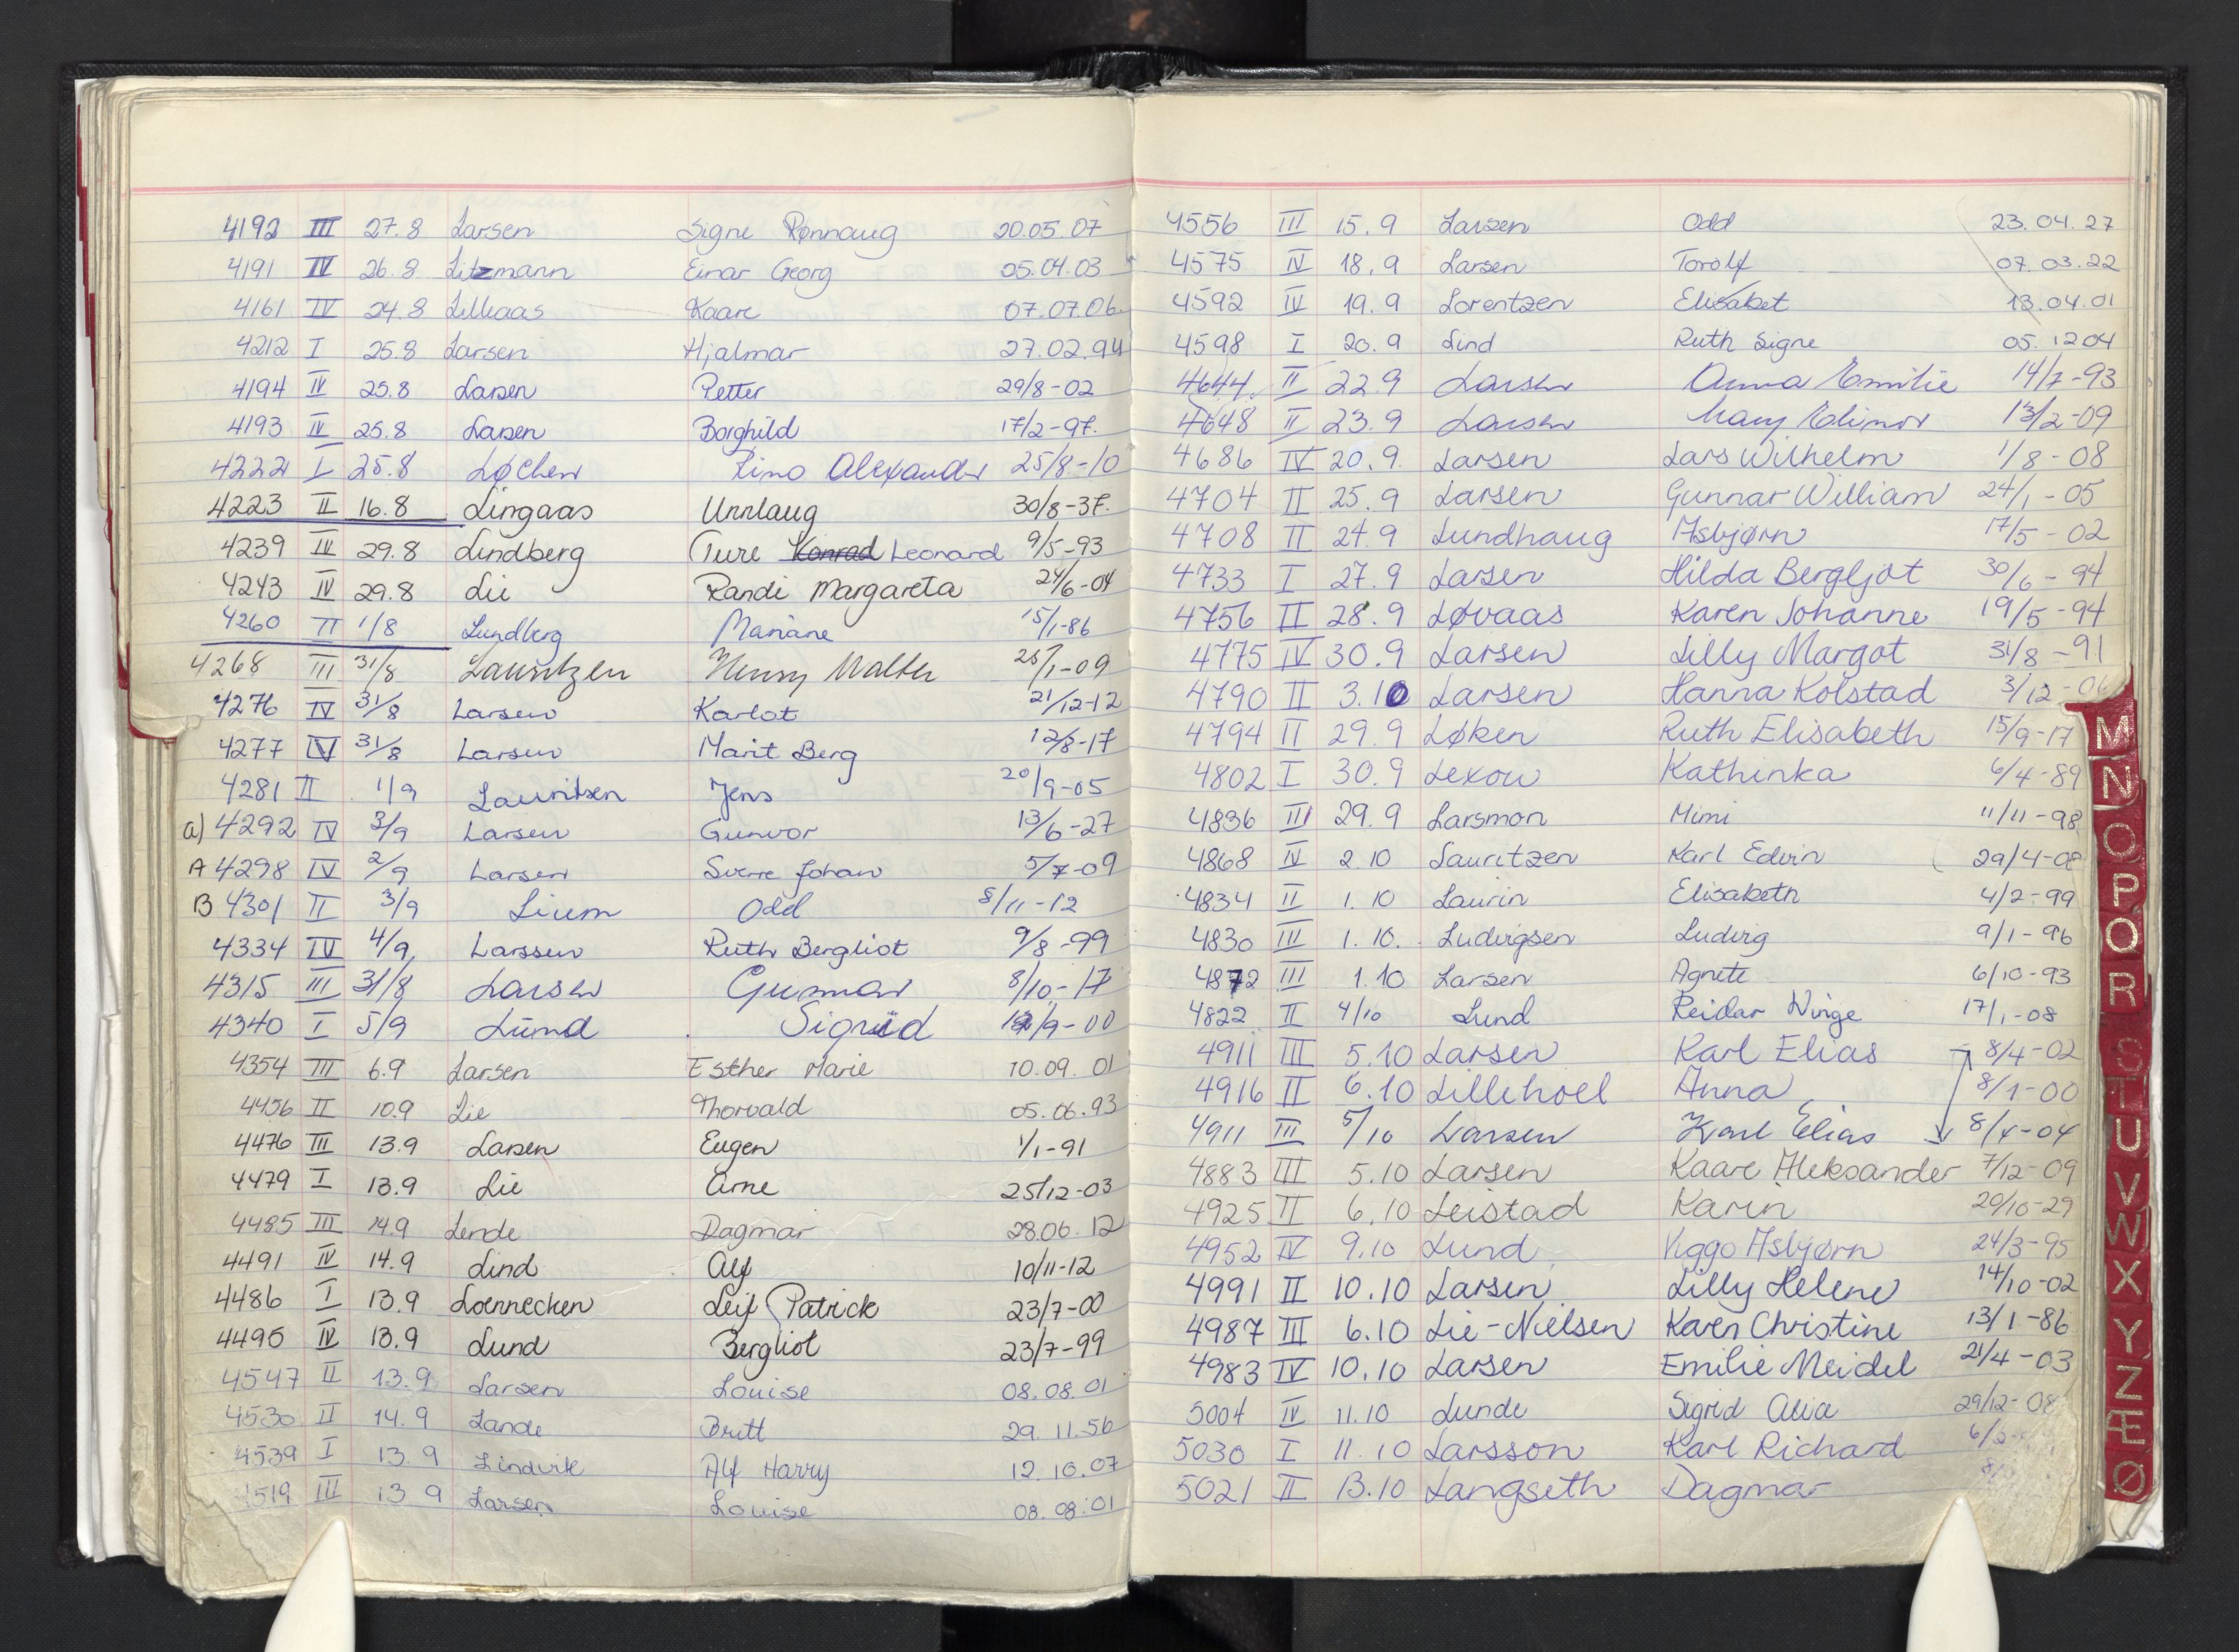 4192 III 27.8 Larsen Signe Rønnaug 20.05.07
4191 IV 26.8 Litzmann Einar Georg 05.04.03
4161 IV 24.8 Lilleaas Kaare 07.07.06.
4212 I 25.8 Larsen Hjalmar 27.02.94
4194 IV 25.8 Larsen Petter 29/8-02
4193 IV 25.8 Larsen Borghild 17/2-97.
4222 I 25.8 Løchen Alexander 25/8-10
4223 II 16.8 Lingaas Unnlaug 30/8-37.
4239 IV 29.8 Lindberg Ture Konrad Leonard 9/5-93
4243 IV 29.8 Lie Randi Margareta 24/6-04
4260 II 1/8 Lundberg Mariane 15/1-86
4268 III 31/8 Lauritzen Henry Walter 25/1-09
4276 IV 31/8 Larsen Karlot 21/12-12
4277 IV 31/8 Larsen Marit Berg 12/8-17
4281 II 1/9 Lauritsen Jens 20/9-05
a) 4292 IV 3/9 Larsen Gunvor 13/6-27
A 4298 IV 2/9 Larsen Sverre Johan 5/7-09
B 4301 II 3/9 Lium Odd 8/11-12
4334 IV 4/9 Larssen Ruth Bergliot 9/8-99
4315 III 31/8 Larsen Gunnar 8/10-17
4340 I 5/9 Lund Sigrid /9-00
4354 III 6.9 Larsen Esther Marie 10.09.01
4456 II 10.9 Lie Thorvald 05.06.93
4476 III 13.9 Larsen Eugen 1/1-91
4479 I 13.9 Lie Arne 25/12-03
4485 III 14.9 Lende Dagmar 28.06.12
4491 IV 14.9 Lind Alf 10/11-12
4486 I 13.9 Loennecken Leif Patrick 23/7-00
4495 IV 13.9 Lund Bergliot 23/7-99
4547 II 13.9 Larsen Louise 08.08.01
4530 II 14.9 Lande Britt 29.11.56
4539 I 13.9 Lindvik Alf Harry 12.10.07
4519 III 13 9 Larsen Louise 08.08.01
4556 III 15.9 Larsen Odd 23.04.27
4575 IV 18.9 Larsen Torolf 07.03.22
4592 IV 19.9 Lorentzen Elisabet 13.04.01
4598 I 20.9 Lind Ruth Signe 05.12 04
4644 II 22.9 Larsen Anna Emilie 14/7-93
4648 II 23.9 Larsen Mary Elinor 13/2-09
4686 IV 20.9. Larsen Lars Wilhelm 1/8-08
4704 II 25.9 Larsen Gunnar William 24/1-05
4708 II 27.9 Lundhaug Asbjørn 17/5-02
4733 I 27.9 Larsen Hilda Bergljot 30/6-94
4756 II 28.9 Løvaas Karen Johanne 19/5-94
4775 IV 30.9 Larsen Lilly Margot 31/8-91
4790 II 3.10 Larsen Hanna Kolstad 3/12-06
4794 II 29.9 Løken Ruth Elisabeth 15/9-17
4802 I 30.9 Lexow Kathinka 6/4-89
4836 III 29.9 Larsmon Mimi 11/11-98
4868 IV 2.10 Lauritzen Karl Edvin 29/4-08
4834 II 1.10 Laurin Elisabeth 4/2-99
4830 III 1.10. Ludvigsen Ludvig 9/1-96
4872 III 1.10 Larsen Agnete 6/10-93
4822 II 4/10 Lund Reidar Winge 17/1-08
4911 III 5.10 Larsen Karl Elias 8/4-02
4916 II 6.10 Lillehoel Anna 8/1-00
4911 III 5/10 Larsen Karl Elias 8/4-04
4883 III 5.10 Larsen Kaare Aleksander 7/12-09
4925 II 6.10 Leistad Karin 29/10-29
4952 IV 9.10 Lund Viggo Asbjørn 24/3-95
4991 II 10.10 Larsen Lilly Helene 14/10-02
4987 III 6.10 Lie-Nielsen Karen Christine 13/1-86
4983 IV 10.10 Larsen Emilie Meidel 21/4-03
5004 IV 11.10 Lunde Sigrid Alia 29/12-08
5030 I 11.10 Larsson Karl Richard
5021 II 13.10 Langseth Dagmar
M
N
O
P
Q
R
S
T
U
V
W
X
Y
Z
Æ
Ø